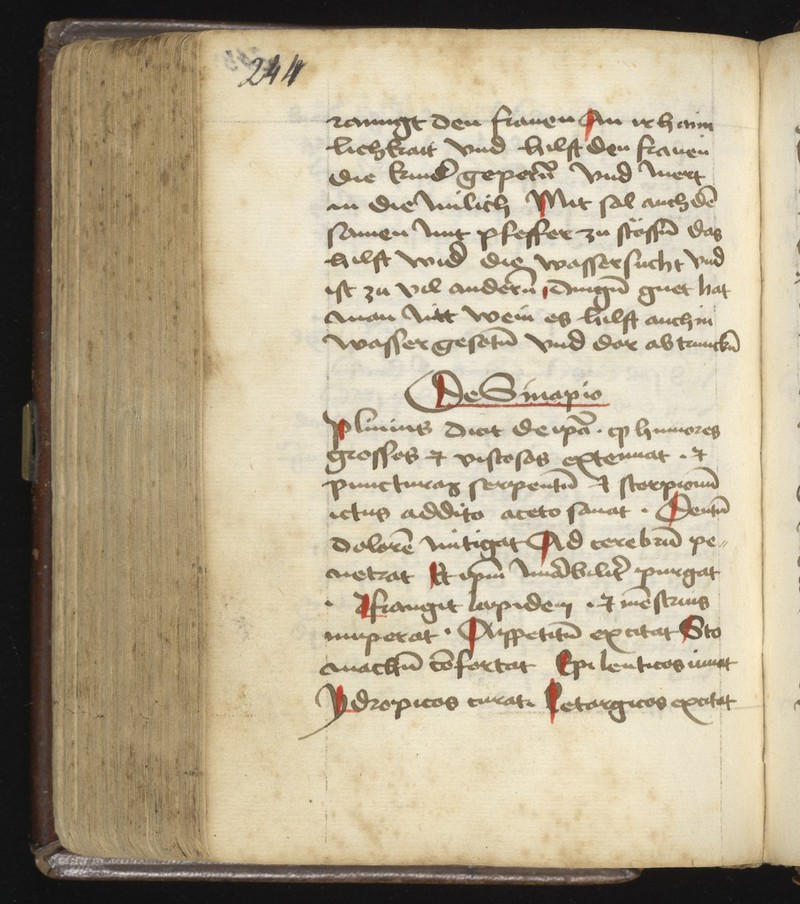 244
rainigt den frawen An ir haim
lichkait vnd hilft den frawen
die kind geperñ vnd mert
in die milich Mit sal auch dē
samen mit pfeffer zu stossñ das
hilft wid die wassersucht vnd
ist zu vil anderñ dingñ guet hat
man nit wein es hilft auch in
wasser gesotñ vnd dar ab trunckñ
De Sinapio
Plinius dicit de ipā · ꝙ humores
grossos ⁊ viscosos extenuat · ⁊
puncturaꝝ serpentū ⁊ scorpionū
ictus addito aceto sanat · Dentiū
dolorē mitigat Ad cerebrū pe-
netrat Et ipm̄ mirabilit̄ purgat
· Frangit lapidem · ⁊ mēstrua
imperat · Appetitū excitat Sto
machū cōfortat Epilenticos iuuat
Ydropicos curat · Letargicos excitat